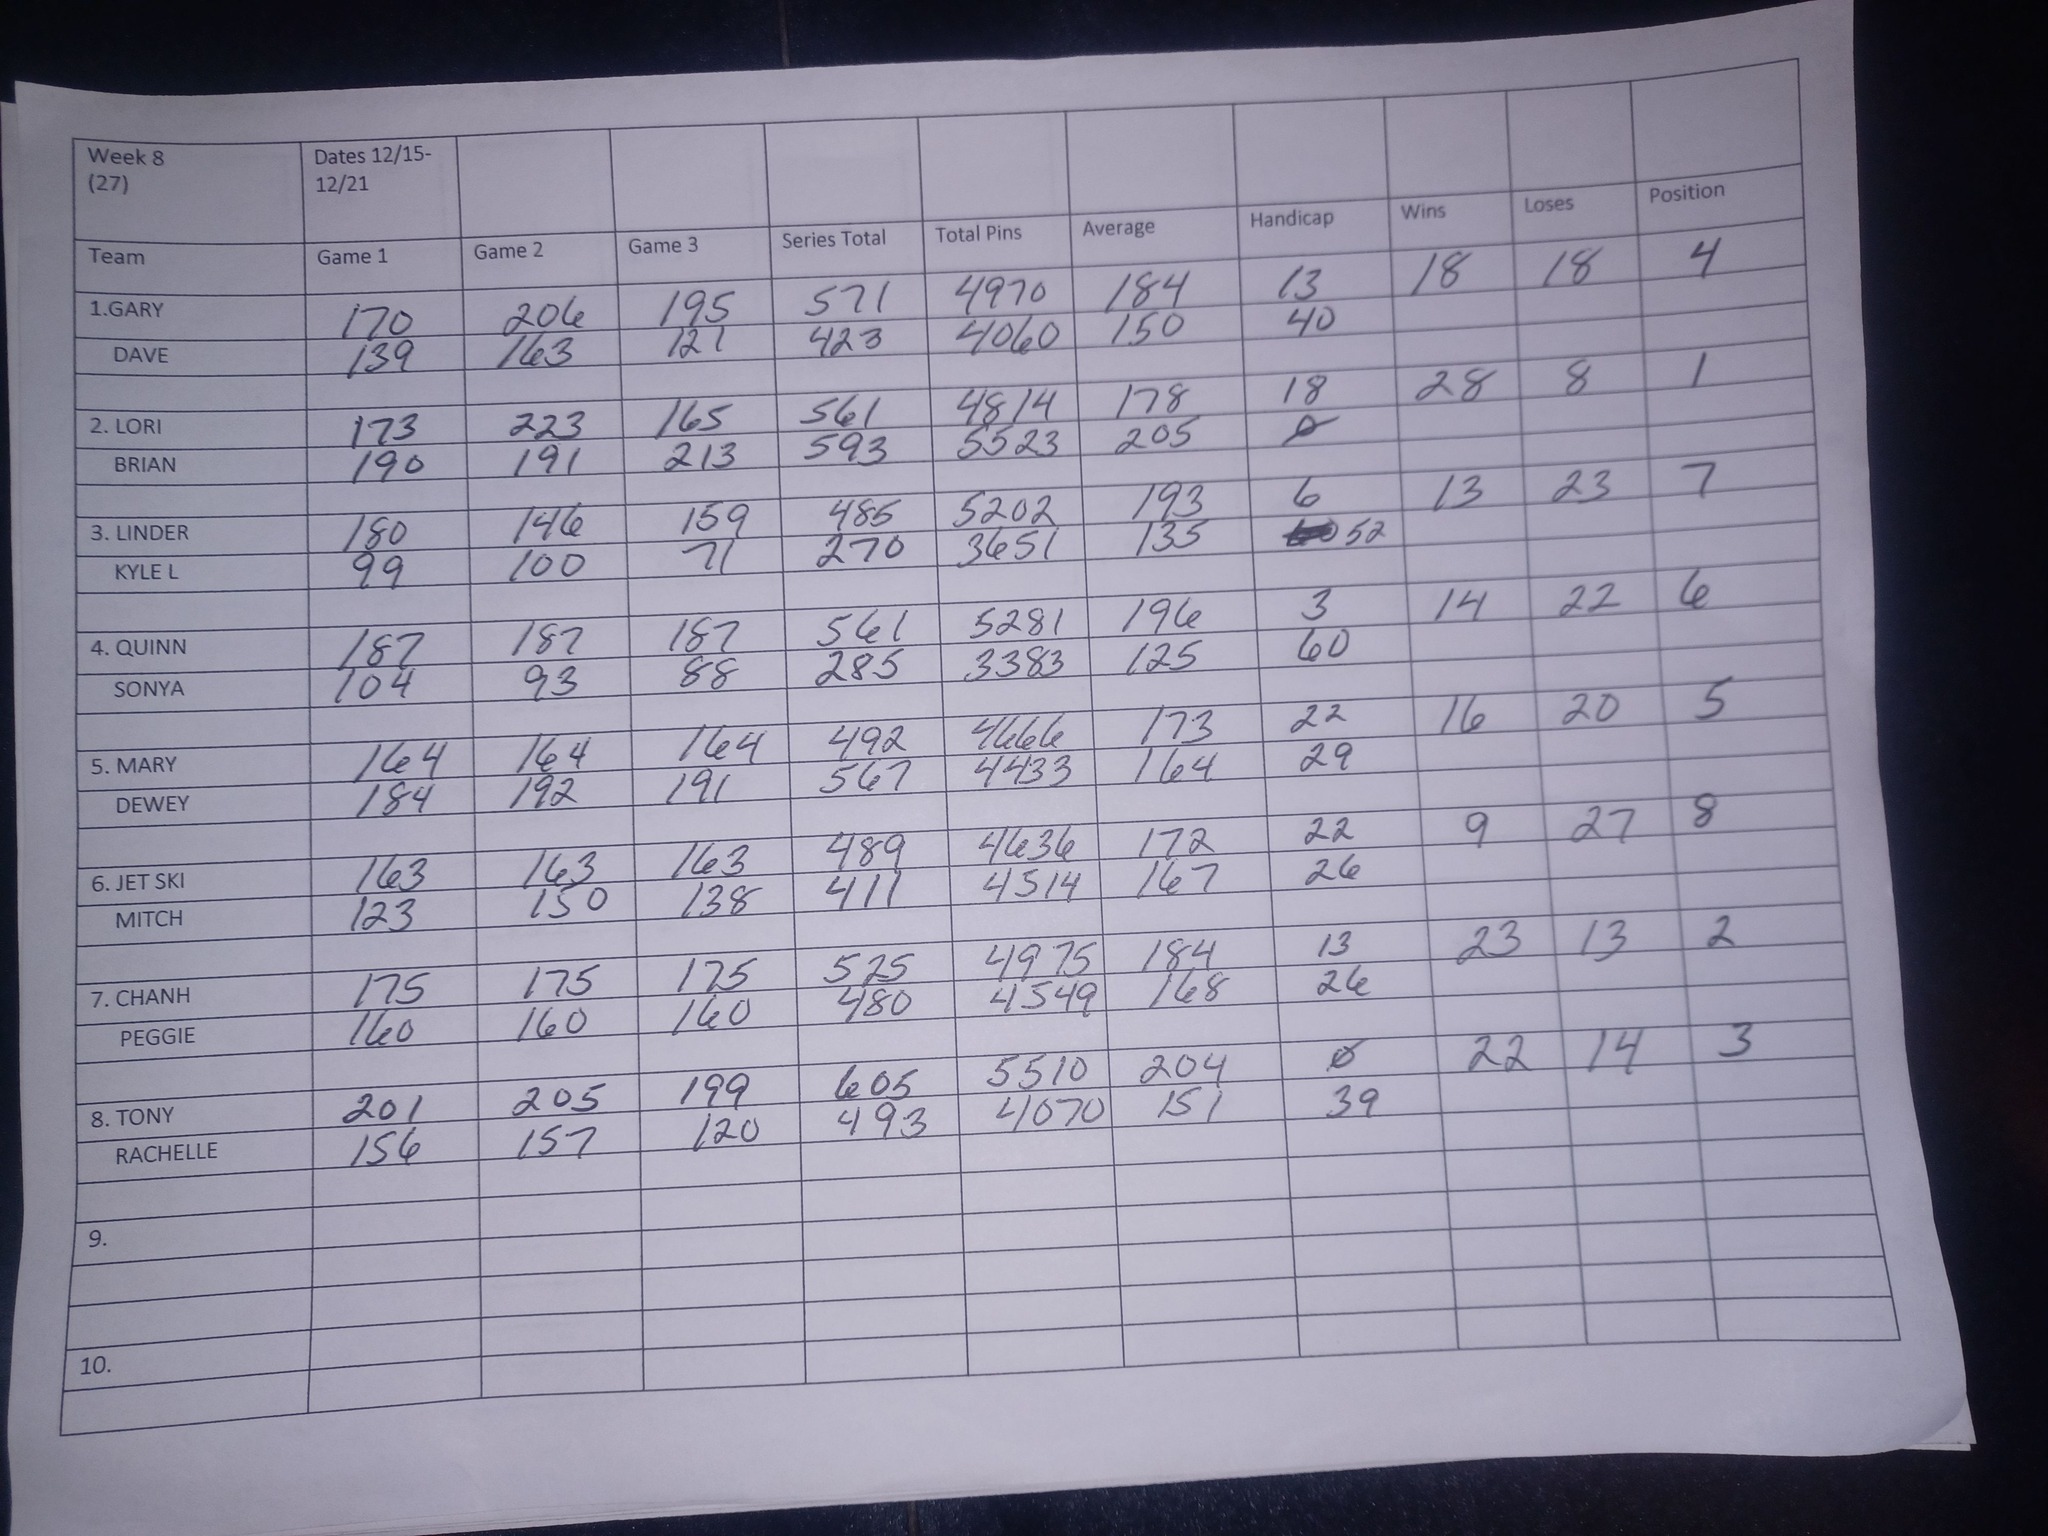 Week 8 Dates 12/15-
(27) 12/21
Team Game 1 Game 2 Game 3 Series Total Total Pins Average Handicap Wins Loses Position
1.GARY 170 206 195 571 4970 184 13 18 18 4
DAVE 139 163 121 423 4060 150 40
2. LORI 173 223 165 561 4814 178 18 28 8 1
BRIAN 190 191 213 593 5523 205 0
3. LINDER 180 146 159 485 5202 193 6 13 23 7
KYLE L 99 100 71 270 3651 135 52
4. QUINN 187 187 187 561 5281 196 3 14 22 6
SONYA 104 93 88 285 3383 125 60
5. MARY 164 164 164 492 4666 173 22 16 20 5
DEWEY 184 192 191 567 4433 164 29
6. JET SKI 163 163 163 489 4636 172 22 9 27 8
MITCH 123 150 138 411 4514 167 26
7. CHANH 175 175 175 525 4975 184 13 23 13 2
PEGGIE 160 160 160 480 4549 168 26
8. TONY 201 205 199 605 5510 204 0 22 14 3
RACHELLE 156 157 120 493 4070 151 39
9.
10.